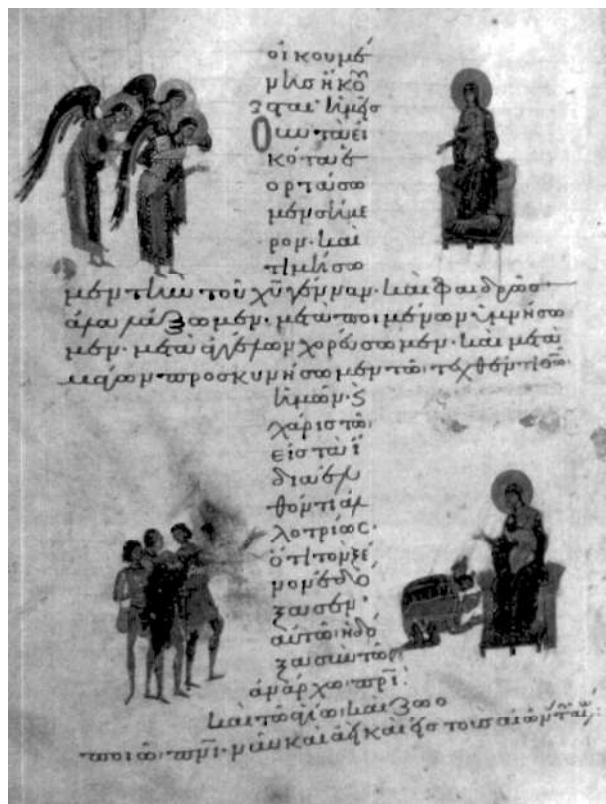 οἰκουμέ
Οὖν τὰ εἰ
κότα ἑ
ορτάσω
μεν σήμε
ρον· καὶ
τιμήσω
μεν τὴν τοῦ χῦ γένναν· καὶ φαιδρῶς
μετὰ ποιμένων ὑμνήσω
μεν· μετὰ ἀγγέλων χορεύσωμεν· καὶ μετὰ
μάγων· προσκυνήσωμεν τῶ τεχθέντι
ἡμῶν·
χάριστω
εἰς τὰ ἴ
δια ἐλ
θόντι ἀλ
λοτρίως·
ὅτι τὸν ξέ
νον ἐδό
ξασεν·
αὐτῶ ἡ δό
ξα σὺν τῶ
ἀνάρχω πρι·
καὶ τῶ ἁγίω· καὶ ζωο
ποιῶ· πνι· νῦν καὶ ἀεὶ καὶ εἰς τοὺς